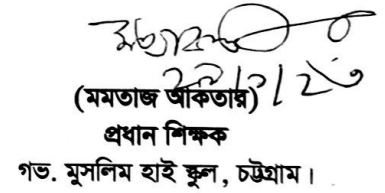 (মমতাজ আকতার)
প্রধান শিক্ষক
গভ. মুসলিম হাই স্কুল, চট্টগ্রাম।